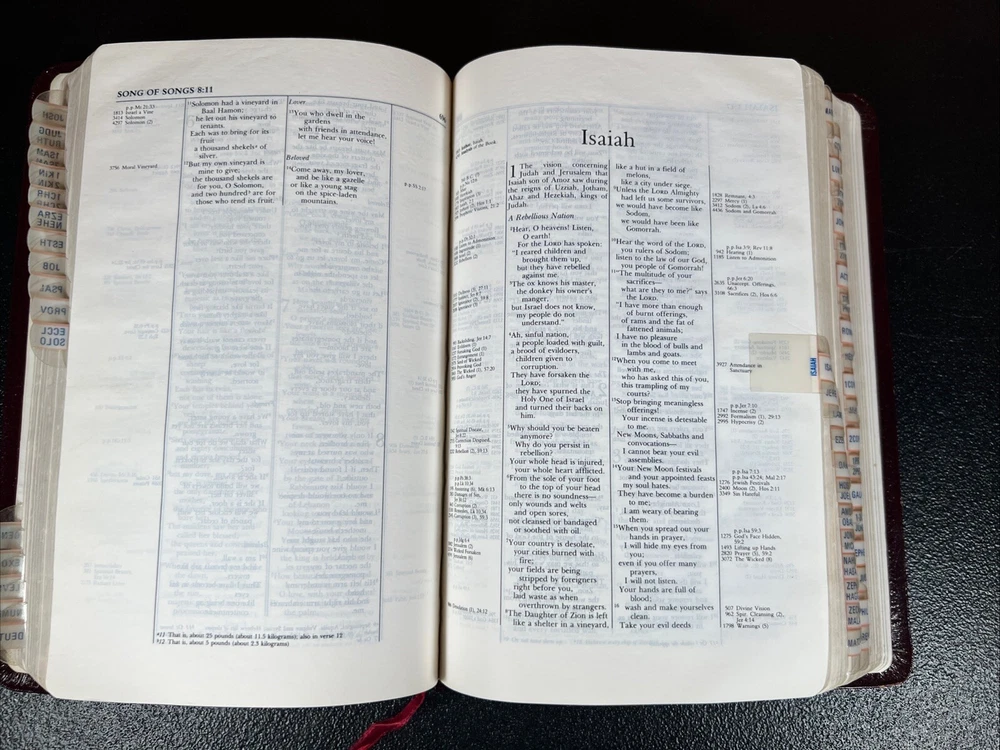 SONG OF SONGS 8:11
p.p. Mt 21:33
1813 Israel a Vine
3414 Solomon
4297 Solomon (2)
3756 Moral Vineyard
11Solomon had a vineyard in
Baal Hamon;
he let out his vineyard to
tenants.
Each was to bring for its
fruit
a thousand shekelsa of
silver.
12But my own vineyard is
mine to give;
the thousand shekels are
for you, O Solomon,
and two hundredb are for
those who tend its fruit.
Lover
13You who dwell in the
gardens
with friends in attendance,
let me hear your voice!
Beloved
14Come away, my lover,
and be like a gazelle
or like a young stag
on the spice-laden
mountains.
a11 That is, about 25 pounds (about 11.5 kilograms); also in verse 12
b12 That is, about 5 pounds (about 2.3 kilograms)
Isaiah
1 The vision concerning
Judah and Jerusalem that
Isaiah son of Amoz saw during
the reigns of Uzziah, Jotham,
Ahaz and Hezekiah, kings of
Judah.
A Rebellious Nation
2Hear, O heavens! Listen,
O earth!
For the LORD has spoken:
"I reared children and
brought them up,
but they have rebelled
against me.
3The ox knows his master,
the donkey his owner's
manger,
but Israel does not know,
my people do not
understand."
4Ah, sinful nation,
a people loaded with guilt,
a brood of evildoers,
children given to
corruption.
They have forsaken the
LORD;
they have spurned the
Holy One of Israel
and turned their backs on
him.
5Why should you be beaten
anymore?
Why do you persist in
rebellion?
Your whole head is injured,
your whole heart afflicted.
6From the sole of your foot
to the top of your head
there is no soundness—
only wounds and welts
and open sores,
not cleansed or bandaged
or soothed with oil.
7Your country is desolate,
your cities burned with
fire;
your fields are being
stripped by foreigners
right before you,
laid waste as when
overthrown by strangers.
8The Daughter of Zion is left
like a shelter in a vineyard,
like a hut in a field of
melons,
like a city under siege.
9Unless the LORD Almighty
had left us some survivors,
we would have become like
Sodom,
we would have been like
Gomorrah.
10Hear the word of the LORD,
you rulers of Sodom;
listen to the law of our God,
you people of Gomorrah!
11"The multitude of your
sacrifices—
what are they to me?" says
the LORD.
"I have more than enough
of burnt offerings,
of rams and the fat of
fattened animals;
I have no pleasure
in the blood of bulls and
lambs and goats.
12When you come to meet
with me,
who has asked this of you,
this trampling of my
courts?
13Stop bringing meaningless
offerings!
Your incense is detestable
to me.
New Moons, Sabbaths and
convocations—
I cannot bear your evil
assemblies.
14Your New Moon festivals
and your appointed feasts
my soul hates.
They have become a burden
to me;
I am weary of bearing
them.
15When you spread out your
hands in prayer,
I will hide my eyes from
you;
even if you offer many
prayers,
I will not listen.
Your hands are full of
blood;
16 wash and make yourselves
clean.
Take your evil deeds
2297 Mercy (1)
3412 Sodom (2), La 4:6
4436 Sodom and Gomorrah
p.p. Isa 3:9; Rev 11:8
942 Hearing (1)
1195 Listen to Admonition
p.p. Jer 6:20
2635 Unaccept. Offerings,
66:3
3108 Sacrifices (2), Hos 6:6
3927 Attendance in
Sanctuary
ISAIAH
p.p. Jer 7:10
1747 Incense (2)
2992 Formalism (1), 29:13
2995 Hypocrisy (2)
p.p. Isa 7:13
p.p. Isa 43:24; Mal 2:17
1276 Jewish Festivals
2400 Moon (2), Hos 2:11
3349 Sin Hateful
p.p. Isa 59:3
1275 God's Face Hidden,
59:2
1493 Lifting up Hands
2820 Prayer (5), 59:2
3072 The Wicked (8)
507 Divine Vision
962 Spir. Cleansing (2),
Jer 4:14
1798 Warnings (5)
JOSH
JUDG
RUTH
1SAM
1KIN
2KIN
1CHR
EZRA
NEHE
ESTH
JOB
PSAL
PROV
ECCL
SOLO
DEUT